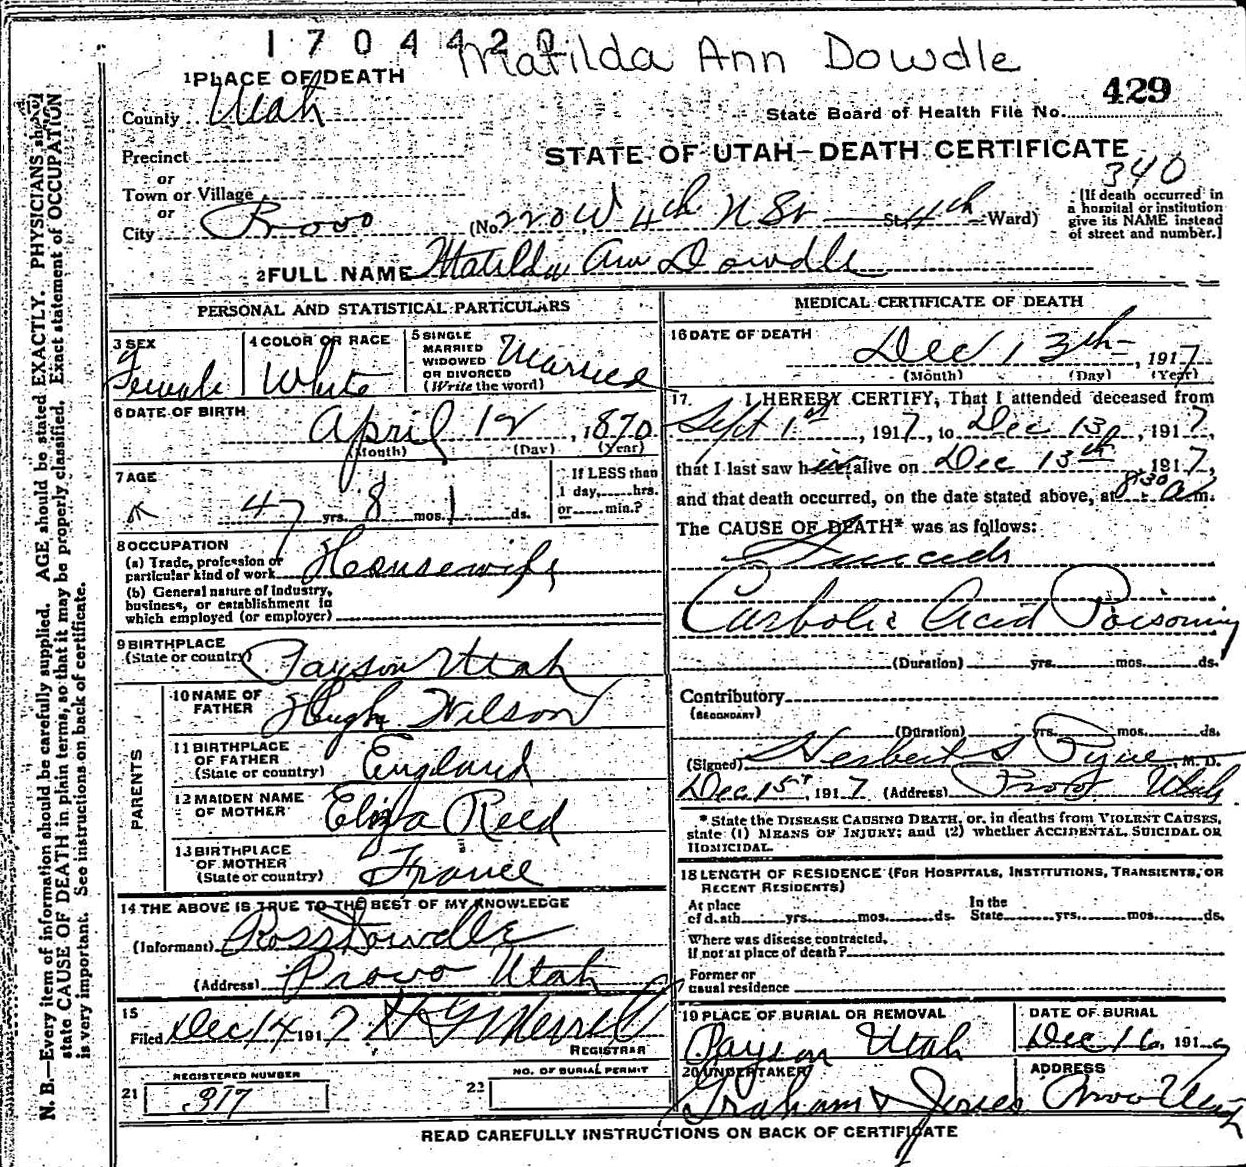 1704420
Matilda Ann Dowdle
1 PLACE OF DEATH
County Utah
429
State Board of Health File No.
Precinct
STATE OF UTAH—DEATH CERTIFICATE
340
or
Town or Village
or
City Provo
(No. 220 W 4th N St St. 4th Ward)
[If death occurred in
a hospital or institution
give its NAME instead
of street and number.]
2 FULL NAME Matilda Ann Dowdle
PERSONAL AND STATISTICAL PARTICULARS
3 SEX
Female
4 COLOR OR RACE
White
5 SINGLE
MARRIED
WIDOWED
OR DIVORCED
(Write the word)
Married
6 DATE OF BIRTH
April 12, 1870
(Month) (Day) (Year)
7 AGE
47 yrs. 8 mos. 1 ds.
If LESS than
1 day, hrs.
or min.?
8 OCCUPATION
(a) Trade, profession or
particular kind of work Housewife
(b) General nature of industry,
business, or establishment in
which employed (or employer)
9 BIRTHPLACE
(State or country) Payson Utah
PARENTS
10 NAME OF
FATHER Hugh Wilson
11 BIRTHPLACE
OF FATHER
(State or country) England
12 MAIDEN NAME
OF MOTHER Eliza Reed
13 BIRTHPLACE
OF MOTHER
(State or country) France
14 THE ABOVE IS TRUE TO THE BEST OF MY KNOWLEDGE
(Informant) Ross Dowdle
(Address) Provo Utah
15
Filed Dec 14 1917 Merrill
REGISTRAR
REGISTERED NUMBER
21 377
NO. OF BURIAL PERMIT
22
MEDICAL CERTIFICATE OF DEATH
16 DATE OF DEATH
Dec 13th, 1917
(Month) (Day) (Year)
17. I HEREBY CERTIFY, That I attended deceased from
Sept 1st, 1917, to Dec 13, 1917,
that I last saw her alive on Dec 13th, 1917,
and that death occurred, on the date stated above, at 8:30 a m.
The CAUSE OF DEATH* was as follows:
Suicide
Carbolic Acid Poisoning
(Duration) yrs. mos. ds.
Contributory
(SECONDARY)
(Duration) yrs. mos. ds.
(Signed) Herbert S Pyne, M. D.
Dec 15th, 1917 (Address) Provo Utah
* State the DISEASE CAUSING DEATH, or, in deaths from VIOLENT CAUSES,
state (1) MEANS OF INJURY; and (2) whether ACCIDENTAL, SUICIDAL OR
HOMICIDAL.
18 LENGTH OF RESIDENCE (FOR HOSPITALS, INSTITUTIONS, TRANSIENTS, OR
RECENT RESIDENTS)
At place
of death yrs. mos. ds.
In the
State yrs. mos. ds.
Where was disease contracted,
if not at place of death?
Former or
usual residence
19 PLACE OF BURIAL OR REMOVAL
Payson Utah
DATE OF BURIAL
Dec 16, 191
20 UNDERTAKER
Graham & Jones
ADDRESS
Provo Utah
READ CAREFULLY INSTRUCTIONS ON BACK OF CERTIFICATE
N. B.—Every item of information should be carefully supplied. AGE should be stated EXACTLY. PHYSICIANS should
state CAUSE OF DEATH in plain terms, so that it may be properly classified. Exact statement of OCCUPATION
is very important. See instructions on back of certificate.